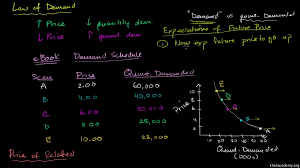 Law of Demand
↑ Price ↓ quantity dem
↓ Price ↑ quant. dem
"Demand" vs quant. Demanded
Expectations of Future Price
① Now exp future price to go up
eBook Demand Schedule
Scen Price Quant. Demanded
A 2.00 60,000
B 4.00 40,000
C 6.00 30,000
D 8.00 25,000
E 10.00 23,000
Price of Related
Price
Quant. Demanded
(000s)